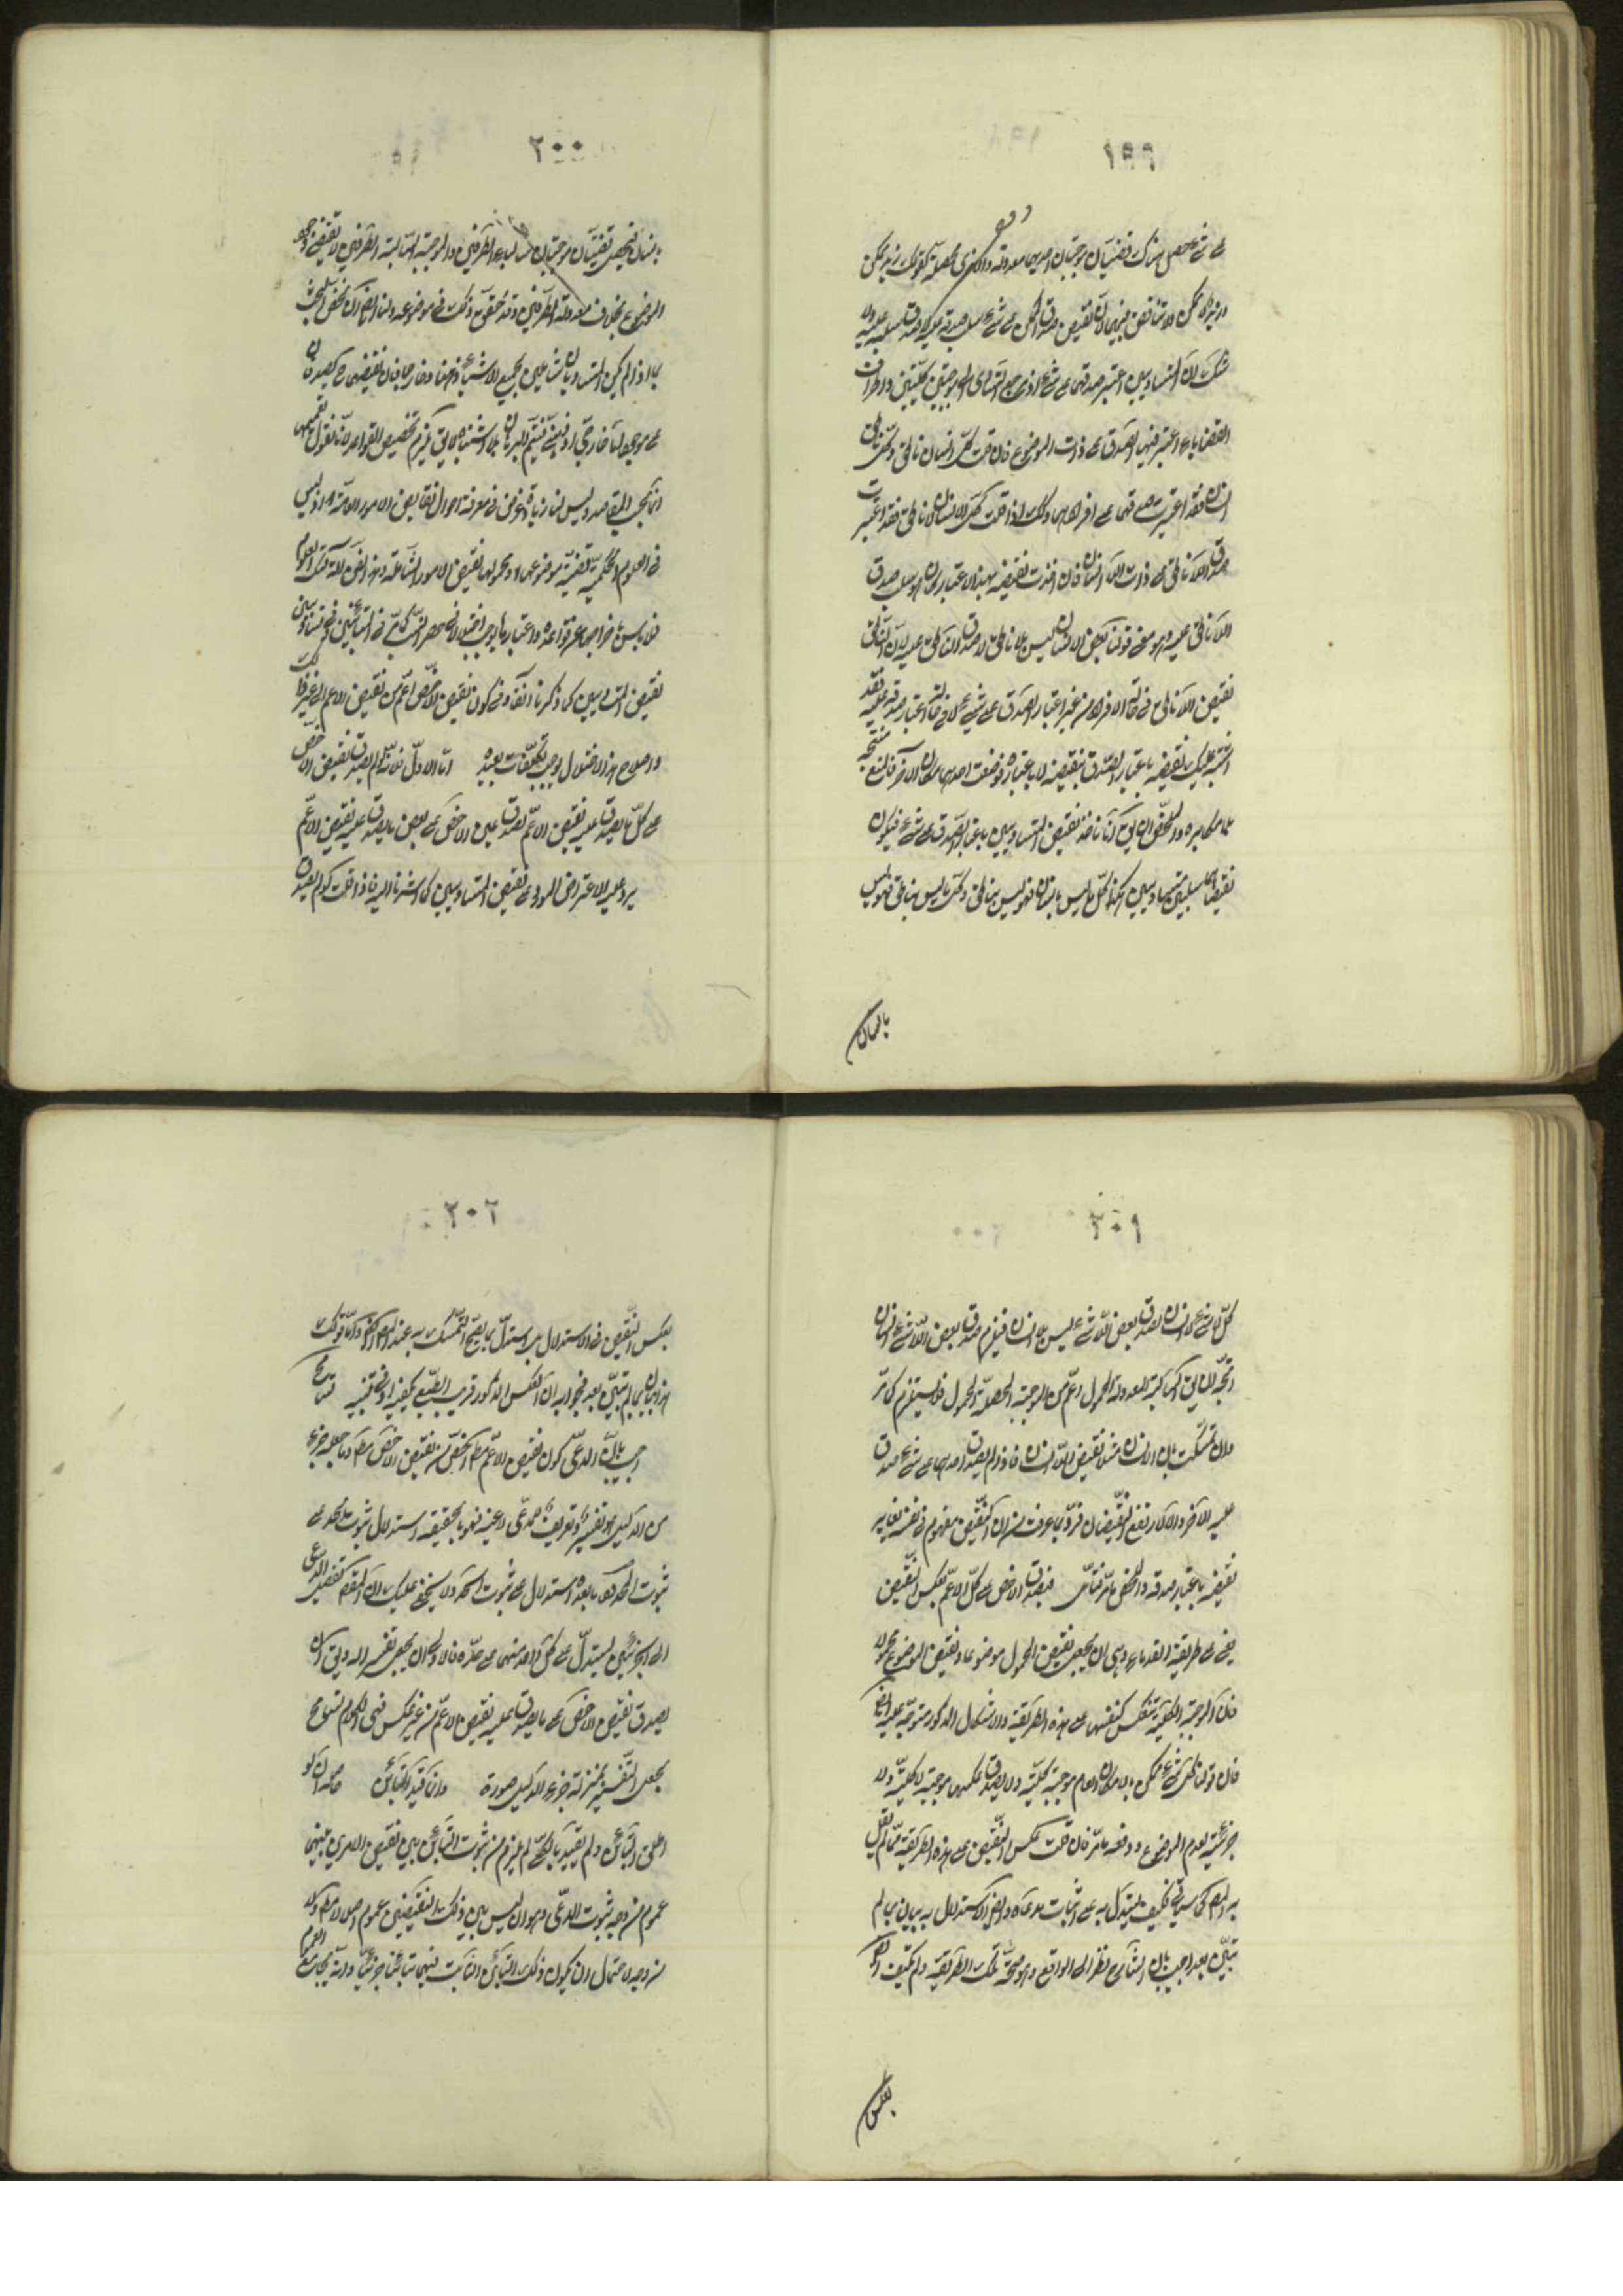 ١٩٩
على شيء يحصل هناك قضيتان موجبتان احديهما معدولة والاخرى محصلة كقولك زيد ممكن
وزيد لا ممكن ولا تناقض بينهما لان نقيض صدق الممكن على شيء سلب صدقه عليه لا صدق سلبه عليه ولا
شك ان المتساويين اعتبر صدقهما على شيء اذ مرجع التساوى الى موجبتين كليتين واطراف
القضايا اعتبر فيها الصدق على ذات الموضوع فان قلت كل انسان ناطق وكل ناطق
انسان فقد اعتبرت صدقهما على افرادهما وكذلك اذا قلت كل لا انسان لا ناطق فقد اعتبرت
صدق اللاناطق على ذات اللاانسان فان اخذت نقيضه بهذا الاعتبار كان هو سلب صدق
اللاناطق عليه وهو معنى قولنا بعض اللاانسان ليس بلا ناطق لا صدق الناطق عليه لان الناطق
نقيض اللاناطق في حال الافراد من غير اعتبار الصدق على شيء بخلاف حال اعتبار صدقه عليه فقد
اشتبه عليك نقيضه باعتبار الصدق بنقيضه لا باعتباره فوضعت احدهما مكان الآخر فالمنع متجه
بلا مكابره والمخلص ان يق انا ناخذ نقيض المتساويين باعتبار الصدق على شيء فيكون
نقيضاهما سلبيتين متساويين هكذا كل ما ليس بانسان فهو ليس بناطق وكل ما ليس بناطق فهو ليس
بانسان
٢٠٠
بانسان فيحصل قضيتان موجبتان سالبتا الطرفين والموجبة السالبة الطرفين لا تقتضى وجود
الموضوع بخلاف معدولة الطرفين وقد حقق ذلك في موضوعه ولنا ايضا ان نخص البحث
بما اذا لم يكن المتساويان شاملين لجميع الاشياء ذهنا وخارجا فان نقيضهما ح يصدقان
على موجود اما خارجى او ذهنى فيتم البرهان بلا اشتباه لا يق يلزم تخصيص القواعد لانا نقول تعميمها
انما يجب بالمقاصد وليس لنا زيادة غرض في معرفة احوال نقايض الامور العامة اذ ليس
في العلوم الحكمية قضية موضوعها او محمولها نقيض الامور الشاملة وهذا الفن الة لتلك العلوم
فلا باس باخراجها عن قواعده واعتبارها يوجب اختلالا في حصر النسب كما مر في المتباينين وفي تساوى
نقيض المتساويين كما ذكرنا آنفا وفي كون نقيض الاخص اعم من نقيض الاعم الى غير ذلك
واصلاح هذا الاختلال يوجب تكلفات بعيدة اما الاول فلانه لو لم يصدق نقيض الاخص
على كل ما يصدق عليه نقيض الاعم لصدق عين الاخص على بعض ما يصدق عليه نقيض الاعم
يرد عليه الاعتراض المورد على نقيض المتساويين كما اشرنا اليه فاذا قلت لو لم يصدق
٢٠١
كل لا شيء لا انسان لصدق بعض اللاشيء ليس بلا انسان فيلزم صدق بعض اللاشيء انسان
اتجه ان يق السالبة المعدولة المحمول اعم من الموجبة المحصلة المحمول فلا يستلزم كما مر
وان تمسكت بان الانسان مثلا نقيض اللاانسان فاذا لم يصدق احدهما على شيء صدق
عليه الآخر والا لارتفع النقيضان فرد بما عرفت من ان النقيض مفهوم في نفسه يغاير
نقيضه باعتبار صدقه والمخلص ما مر فتامل فيصدق الاخص على كل الاعم بعكس النقيض
يعنى على طريقة القدماء وهى ان يجعل نقيض المحمول موضوعا ونقيض الموضوع محمولا
فان الموجبة الكلية تنعكس كنفسها على هذه الطريقة والاشكال المذكور متوجه عليه ايضا
فان قولنا كل شيء ممكن بالامكان العام موجبة كلية ولا يصدق عكسها موجبة لا كلية ولا
جزئية لعدم الموضوع ودفعه ما مر فان قلت عكس النقيض على هذه الطريقة مما لم يقل
به المص كما سيأتي فكيف يستدل به على اثبات مدعاه وايضا الاستدلال به بيان بما لم
يتبين بعد اجيب بان الشارح نظر الى الواقع وهو صحة تلك الطريقة ولم يكتف ايضا
بعكس
٢٠٢
بعكس النقيض في الاستدلال بل استدل بما يصح التمسك به عند المص ايضا واما قولك
هذا بيان بما لم يتبين بعد فجوابه ان العكس المذكور قريب الطبع يكفيه ادنى تنبيه تسامح
اجيب بان المدعى كون نقيض الاعم مطلقا اخص من نقيض الاخص مطلقا وما جعله جزء
من الدليل هو تفسير وتعريف للمدعى لا عينه فهو بالحقيقة استدلال بثبوت الحد على
ثبوت المحدود وما بعده استدلال على ثبوت الحد ولا يخفى عليك ان المقام تفصيل المدعى
الى جزئين ليستدل على كل واحد منهما على حدة فالاولى ان يجعل تفسيرا له ويق اى ان
يصدق نقيض الاخص على كل ما يصدق عليه نقيض الاعم من غير عكس ففى الكلام تسامح
بجعل التفسير بمنزلة جزء الدليل صورة وانما قيد التباين حاصله انه لو
اطلق التباين ولم يقيد بالكلى لم يلزم من ثبوت التباين بين نقيضى امرين بينهما
عموم من وجه ثبوت المدعى وهو ان ليس بين ذينك النقيضين عموم اصلا لا مطلقا ولا
من وجه لاحتمال ان يكون ذلك التباين الثابت بينهما تباينا جزئيا وانه يجامع العموم